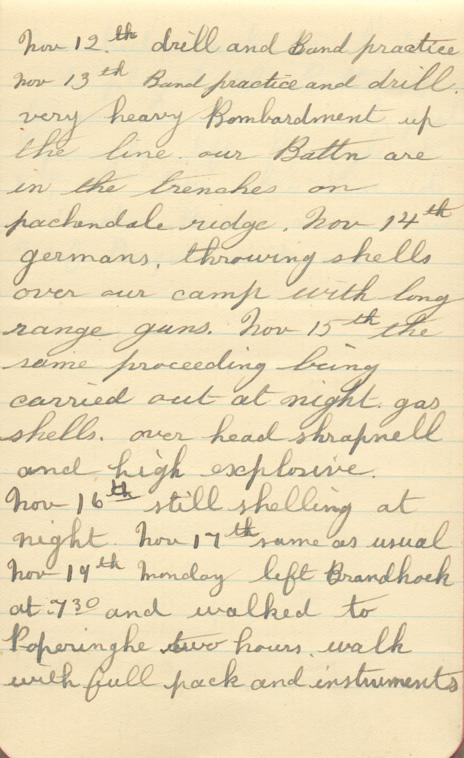 Nov 12.th drill and Band practice
Nov 13th Band practice and drill.
very heavy Bombardment up
the line. our Battn are
in the trenches on
pachendale ridge. Nov 14th
germans. throwing shells
over our camp with long
range guns. Nov 15th the
same proceeding being
carried out at night. gas
shells. over head shrapnell
and high explosive.
Nov 16th still shelling at
night. Nov 17th same as usual
Nov 19th Monday left Brandhoek
at 7 30 and walked to
Poperinghe two hours. walk
with full pack and instruments